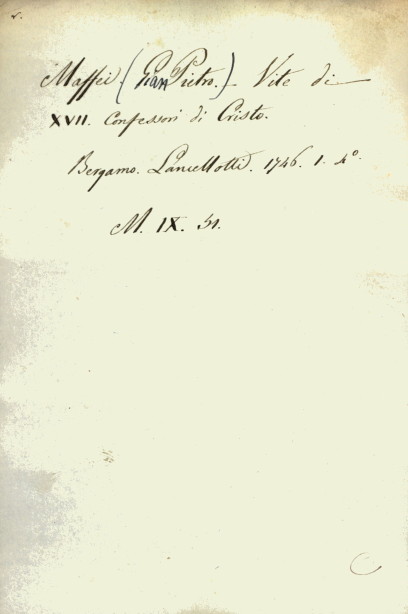 Maffei (Gian Pietro.) Vite di
XVII. Confessori di Cristo.
Bergamo. Lancellotti. 1746. 1. 4°.
M. IX. 51.